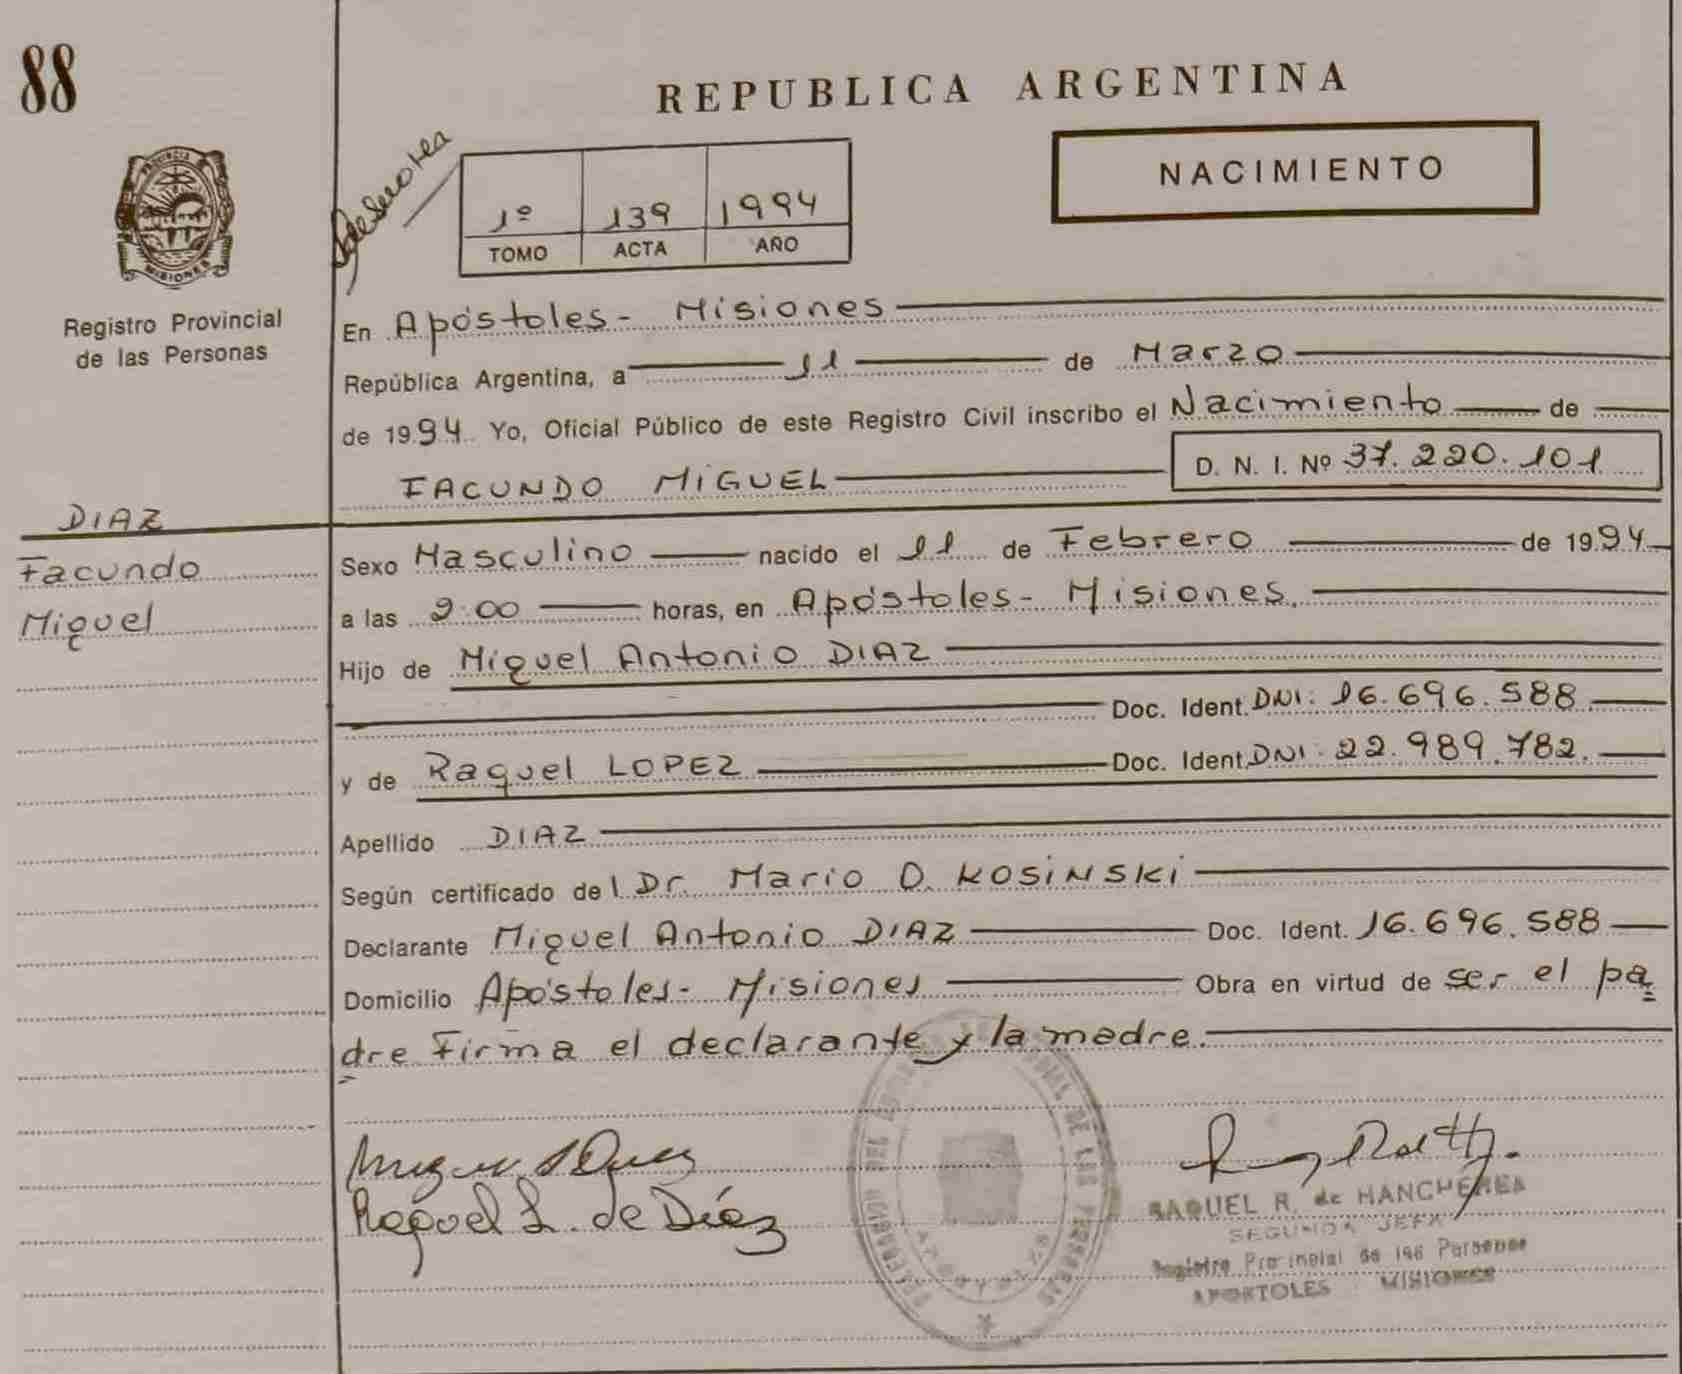 88
REPUBLICA ARGENTINA
NACIMIENTO
1º 139 1994
TOMO ACTA AÑO
PROVINCIA DE
MISIONES
Registro Provincial
de las Personas
En Apóstoles - Misiones
República Argentina, a 11 de Marzo
de 1994 Yo, Oficial Público de este Registro Civil inscribo el Nacimiento de
FACUNDO MIGUEL D. N. I. Nº 37.220.101
DIAZ
Facundo
Miguel
Sexo Masculino nacido el 11 de Febrero de 1994
a las 2:00 horas, en Apóstoles - Misiones.
Hijo de Miguel Antonio DIAZ
Doc. Ident. DNI: 16.696.588
y de Raquel LOPEZ Doc. Ident. DNI: 22.989.782.
Apellido DIAZ
Según certificado del Dr. Mario O. KOSINSKI
Declarante Miguel Antonio DIAZ Doc. Ident. 16.696.588
Domicilio Apóstoles - Misiones Obra en virtud de ser el pa
dre Firma el declarante y la madre.
Raquel L. de Díaz
RAQUEL R. de
SEGUNDA JEFA
Registro Provincial de las Personas
APOSTOLES MISIONES